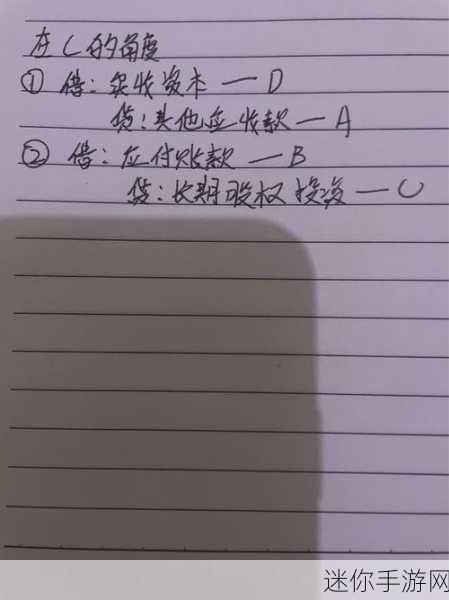 在C的角度
① 借：实收资本 — D
贷：其他应收款 — A
② 借：应付账款 — B
贷：长期股权投资 — C
迷你手游网